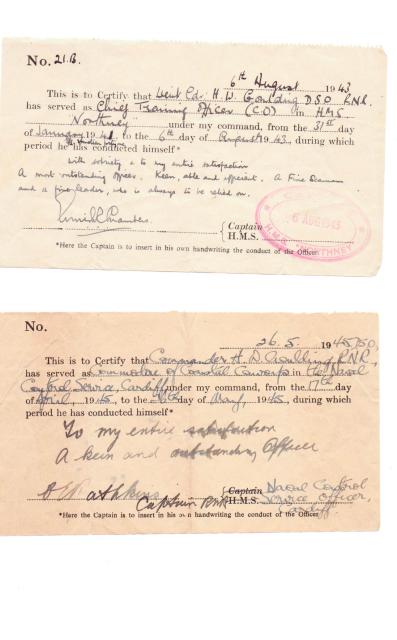 No. 21.B.
6th August 1943
This is to Certify that Lieut Cdr. H. W. Goulding DSO RNR.
has served as Chief Training Officer (CO) in HMS
Northney under my command, from the 31st day
of January 194, to the 6th day of August 1943, during which
period he has conducted himself*
with sobriety & to my entire satisfaction
A most outstanding officer. Keen, able and efficient. A Fine Seaman
and a fine leader, who is always to be relied on.
Chambers.
Captain
H.M.S.
6 AUG 1943
H.M.S. "NORTHNEY"
*Here the Captain is to insert in his own handwriting the conduct of the Officer.
No.
26. 5. 1945
This is to Certify that Commander H. D. Goulding, RNR,
has served as Commodore of Coastal Convoys in the Naval
Control Service, Cardiff, under my command, from the 17th day
of April, 1945, to the 26th day of May, 1945, during which
period he has conducted himself*
To my entire satisfaction
A keen and outstanding Officer
Captain RNR
Captain
H.M.S.
Naval Control
Service Officer,
Cardiff.
*Here the Captain is to insert in his own handwriting the conduct of the Officer